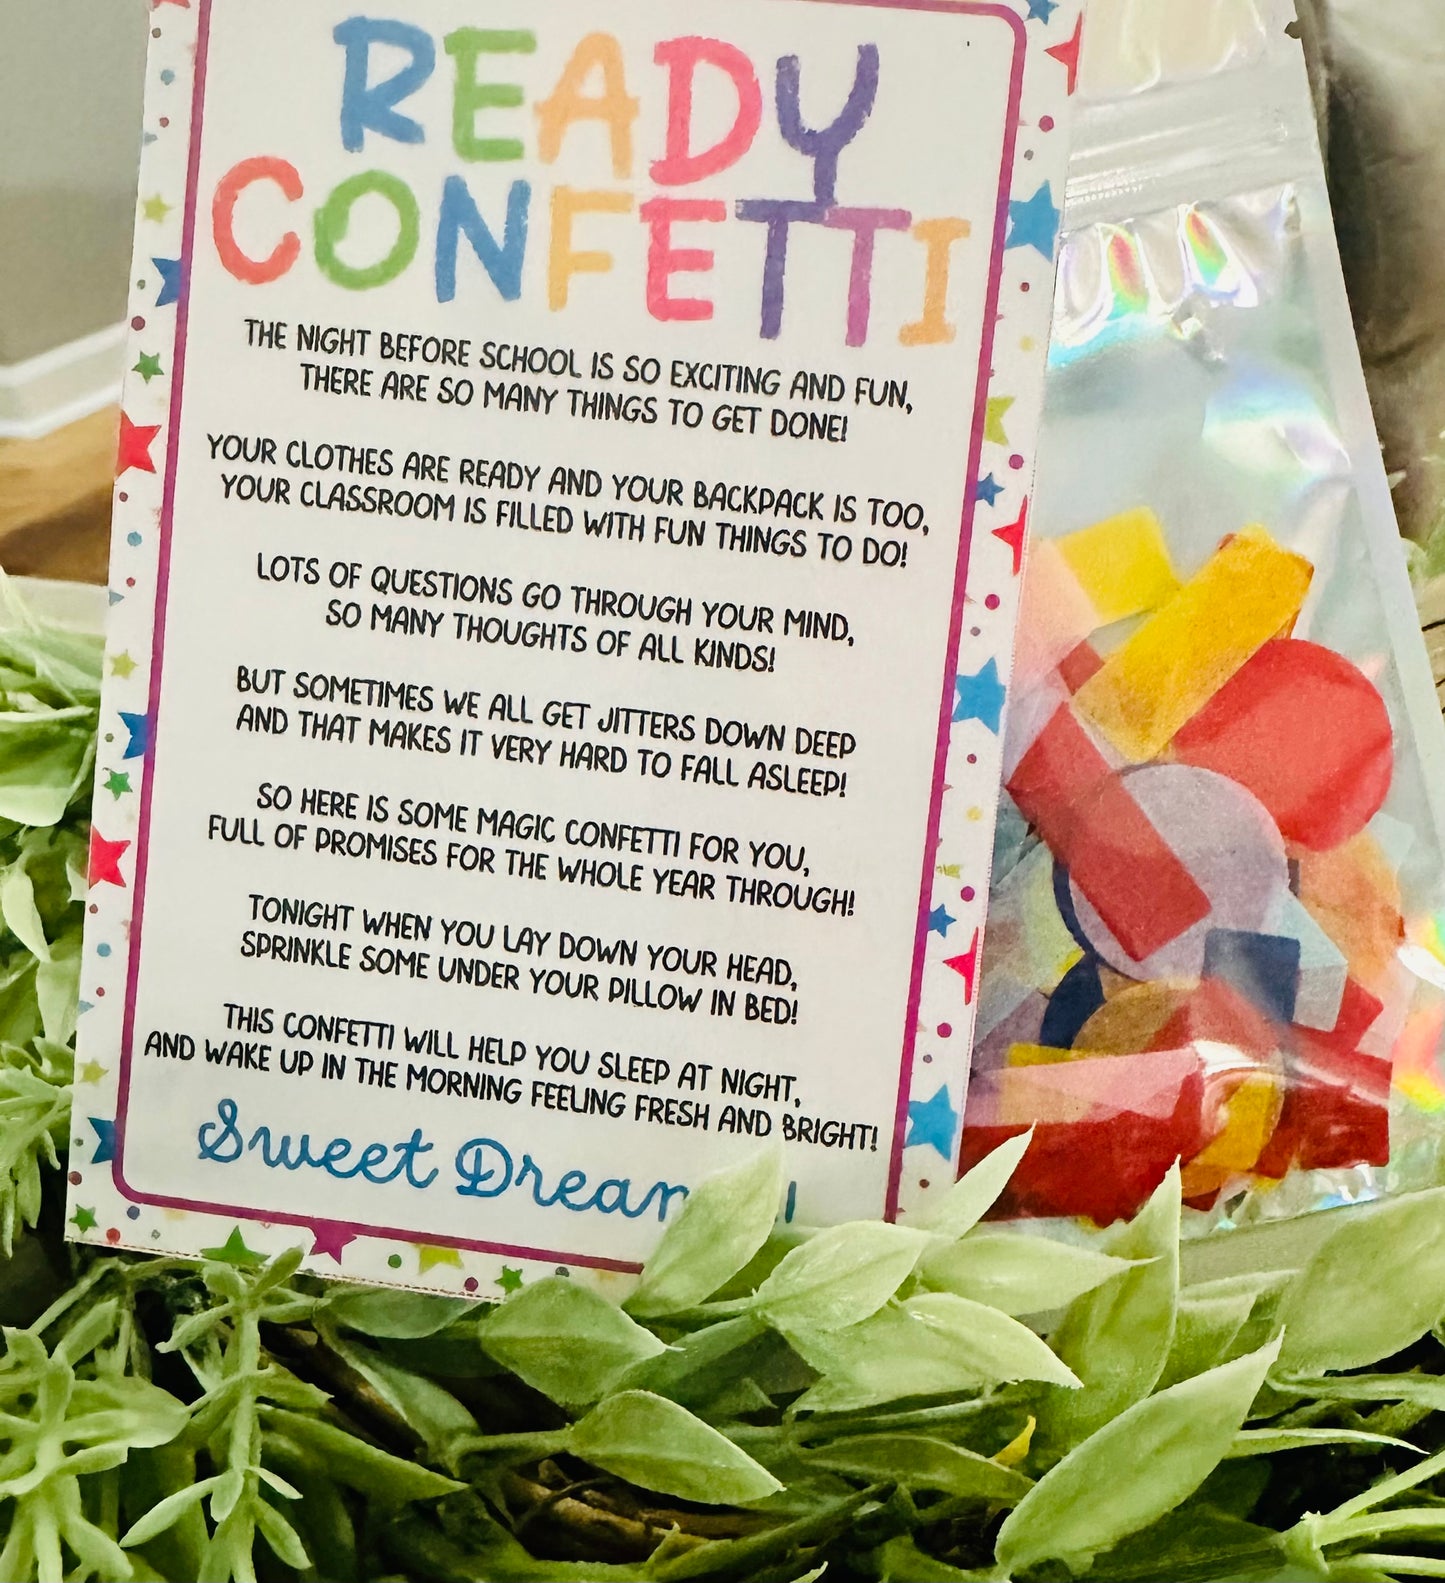 READY
CONFETTI
THE NIGHT BEFORE SCHOOL IS SO EXCITING AND FUN,
THERE ARE SO MANY THINGS TO GET DONE!
YOUR CLOTHES ARE READY AND YOUR BACKPACK IS TOO,
YOUR CLASSROOM IS FILLED WITH FUN THINGS TO DO!
LOTS OF QUESTIONS GO THROUGH YOUR MIND,
SO MANY THOUGHTS OF ALL KINDS!
BUT SOMETIMES WE ALL GET JITTERS DOWN DEEP
AND THAT MAKES IT VERY HARD TO FALL ASLEEP!
SO HERE IS SOME MAGIC CONFETTI FOR YOU,
FULL OF PROMISES FOR THE WHOLE YEAR THROUGH!
TONIGHT WHEN YOU LAY DOWN YOUR HEAD,
SPRINKLE SOME UNDER YOUR PILLOW IN BED!
THIS CONFETTI WILL HELP YOU SLEEP AT NIGHT,
AND WAKE UP IN THE MORNING FEELING FRESH AND BRIGHT!
Sweet